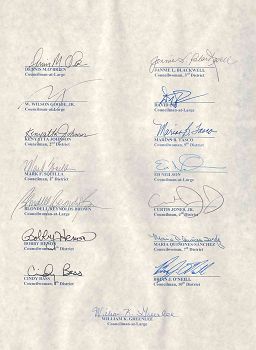 DENNIS M. O'BRIEN
Councilman-at-Large
JANNIE L. BLACKWELL
Councilwoman, 3rd District
W. WILSON GOODE, JR.
Councilman-at-Large
DAVID OH
Councilman-at-Large
KENYATTA JOHNSON
Councilman, 2nd District
MARIAN B. TASCO
Councilwoman, 9th District
Mark Squilla
MARK F. SQUILLA
Councilman, 1st District
ED NEILSON
Councilman, 6th District
BLONDELL REYNOLDS BROWN
Councilwoman-at-Large
CURTIS JONES, JR.
Councilman, 4th District
Bobby Henon
BOBBY HENON
Councilman, 6th District
MARIA QUINONES SANCHEZ
Councilwoman, 7th District
Cindy Bass
CINDY BASS
Councilwoman, 8th District
BRIAN J. O'NEILL
Councilman, 10th District
William K. Greenlee
WILLIAM K. GREENLEE
Councilman-at-Large